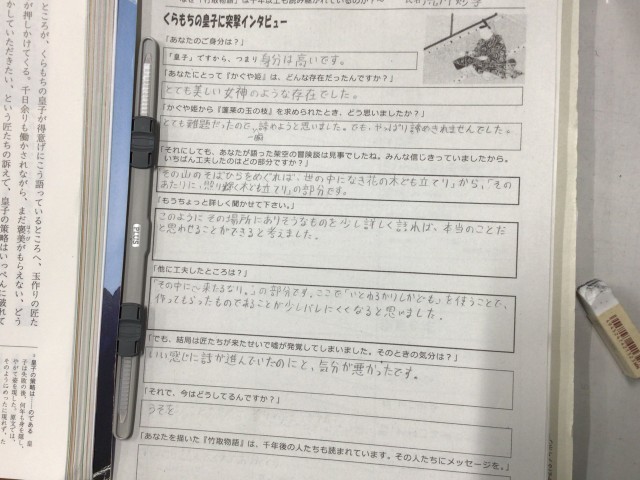 くらもちの皇子に突撃インタビュー
「あなたのご身分は？」
「皇子」ですから、つまり身分は高いです。
「あなたにとって『かぐや姫』は、どんな存在だったんですか？」
とても美しい女神のような存在でした。
「かぐや姫から『蓬莱の玉の枝』を求められたとき、どう思いましたか？」
とても難題だったので、一瞬諦めようと思いました。でも、やっぱり諦めきれませんでした。
「それにしても、あなたが語った架空の冒険談は見事でしたね。みんな信じきっていましたから。
いちばん工夫したのはどの部分ですか？」
「その山のそばひらをめぐれば、世の中になき花の木ども立てり」から、「その
あたりに、照り輝く木ども立てり」の部分です。
「もうちょっと詳しく聞かせて下さい。」
このようにその場所にありそうなものを少し詳しく語れば、本当のことだ
と思わせることができると考えました。
「他に工夫したところは？」
の部分です。ここで「いとわろかりしかども」を使うことで、
作ってもらったものであることが少しバレにくくなると思いました。
「でも、結局は匠たちが来たせいで嘘が発覚してしまいました。そのときの気分は？」
いい感じに話が進んでいたのにと、気分が悪かったです。
「それで、今はどうしてるんですか？」
うそを
「あなたを描いた『竹取物語』は、千年後の人たちも読まれています。その人たちにメッセージを。」
ところが、くらもちの皇子が得意げにこう語っているところへ、玉作りの匠た
が押しかけてくる。千日余りも働かされながら、まだ褒美がもらえない、どう
かしていただきたい、という匠たちの訴えで、皇子の策略はいっぺんに破れて